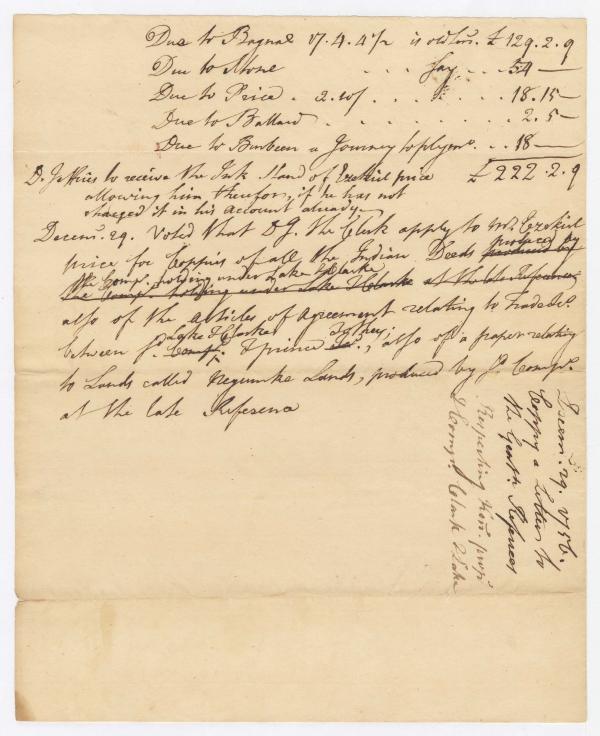 Due to Bagnal 17.4.4½ is old Ten.r £129.2.9
Due to Stone . . . Say . . 54 —
Due to Price . 2.10/ . . . . 18.15 —
Due to Ballard . . . . . . 2.5 —
Due to Burbeen a Journey to plym.o . . . 18 —
D. Jeffries to receive the Ink Stand of Ezekiel price £222.2.9
allowing him therefor, if he has not
charged it in his account already
Decem.r 29. Voted that D J. the Clerk apply to m.r Ezekiel
price for Coppies of all the Indian Deeds produced by
the Comp.a holding under Lake & Clarke
the Comp.a holding under Lake & Clarke at the late Reference
also of the Articles of Agreement relating to Trade &c.
between s.d Lake & Clarke & prince, also of a paper relating
to Lands called Negumke Lands, produced by s.d Comp.a
at the late Reference
Decem.r 29. 1756.
Coppy a Letter to
the Gent.n Referees
Respecting Ken. prop.s
& Comp.a Clark & Lake